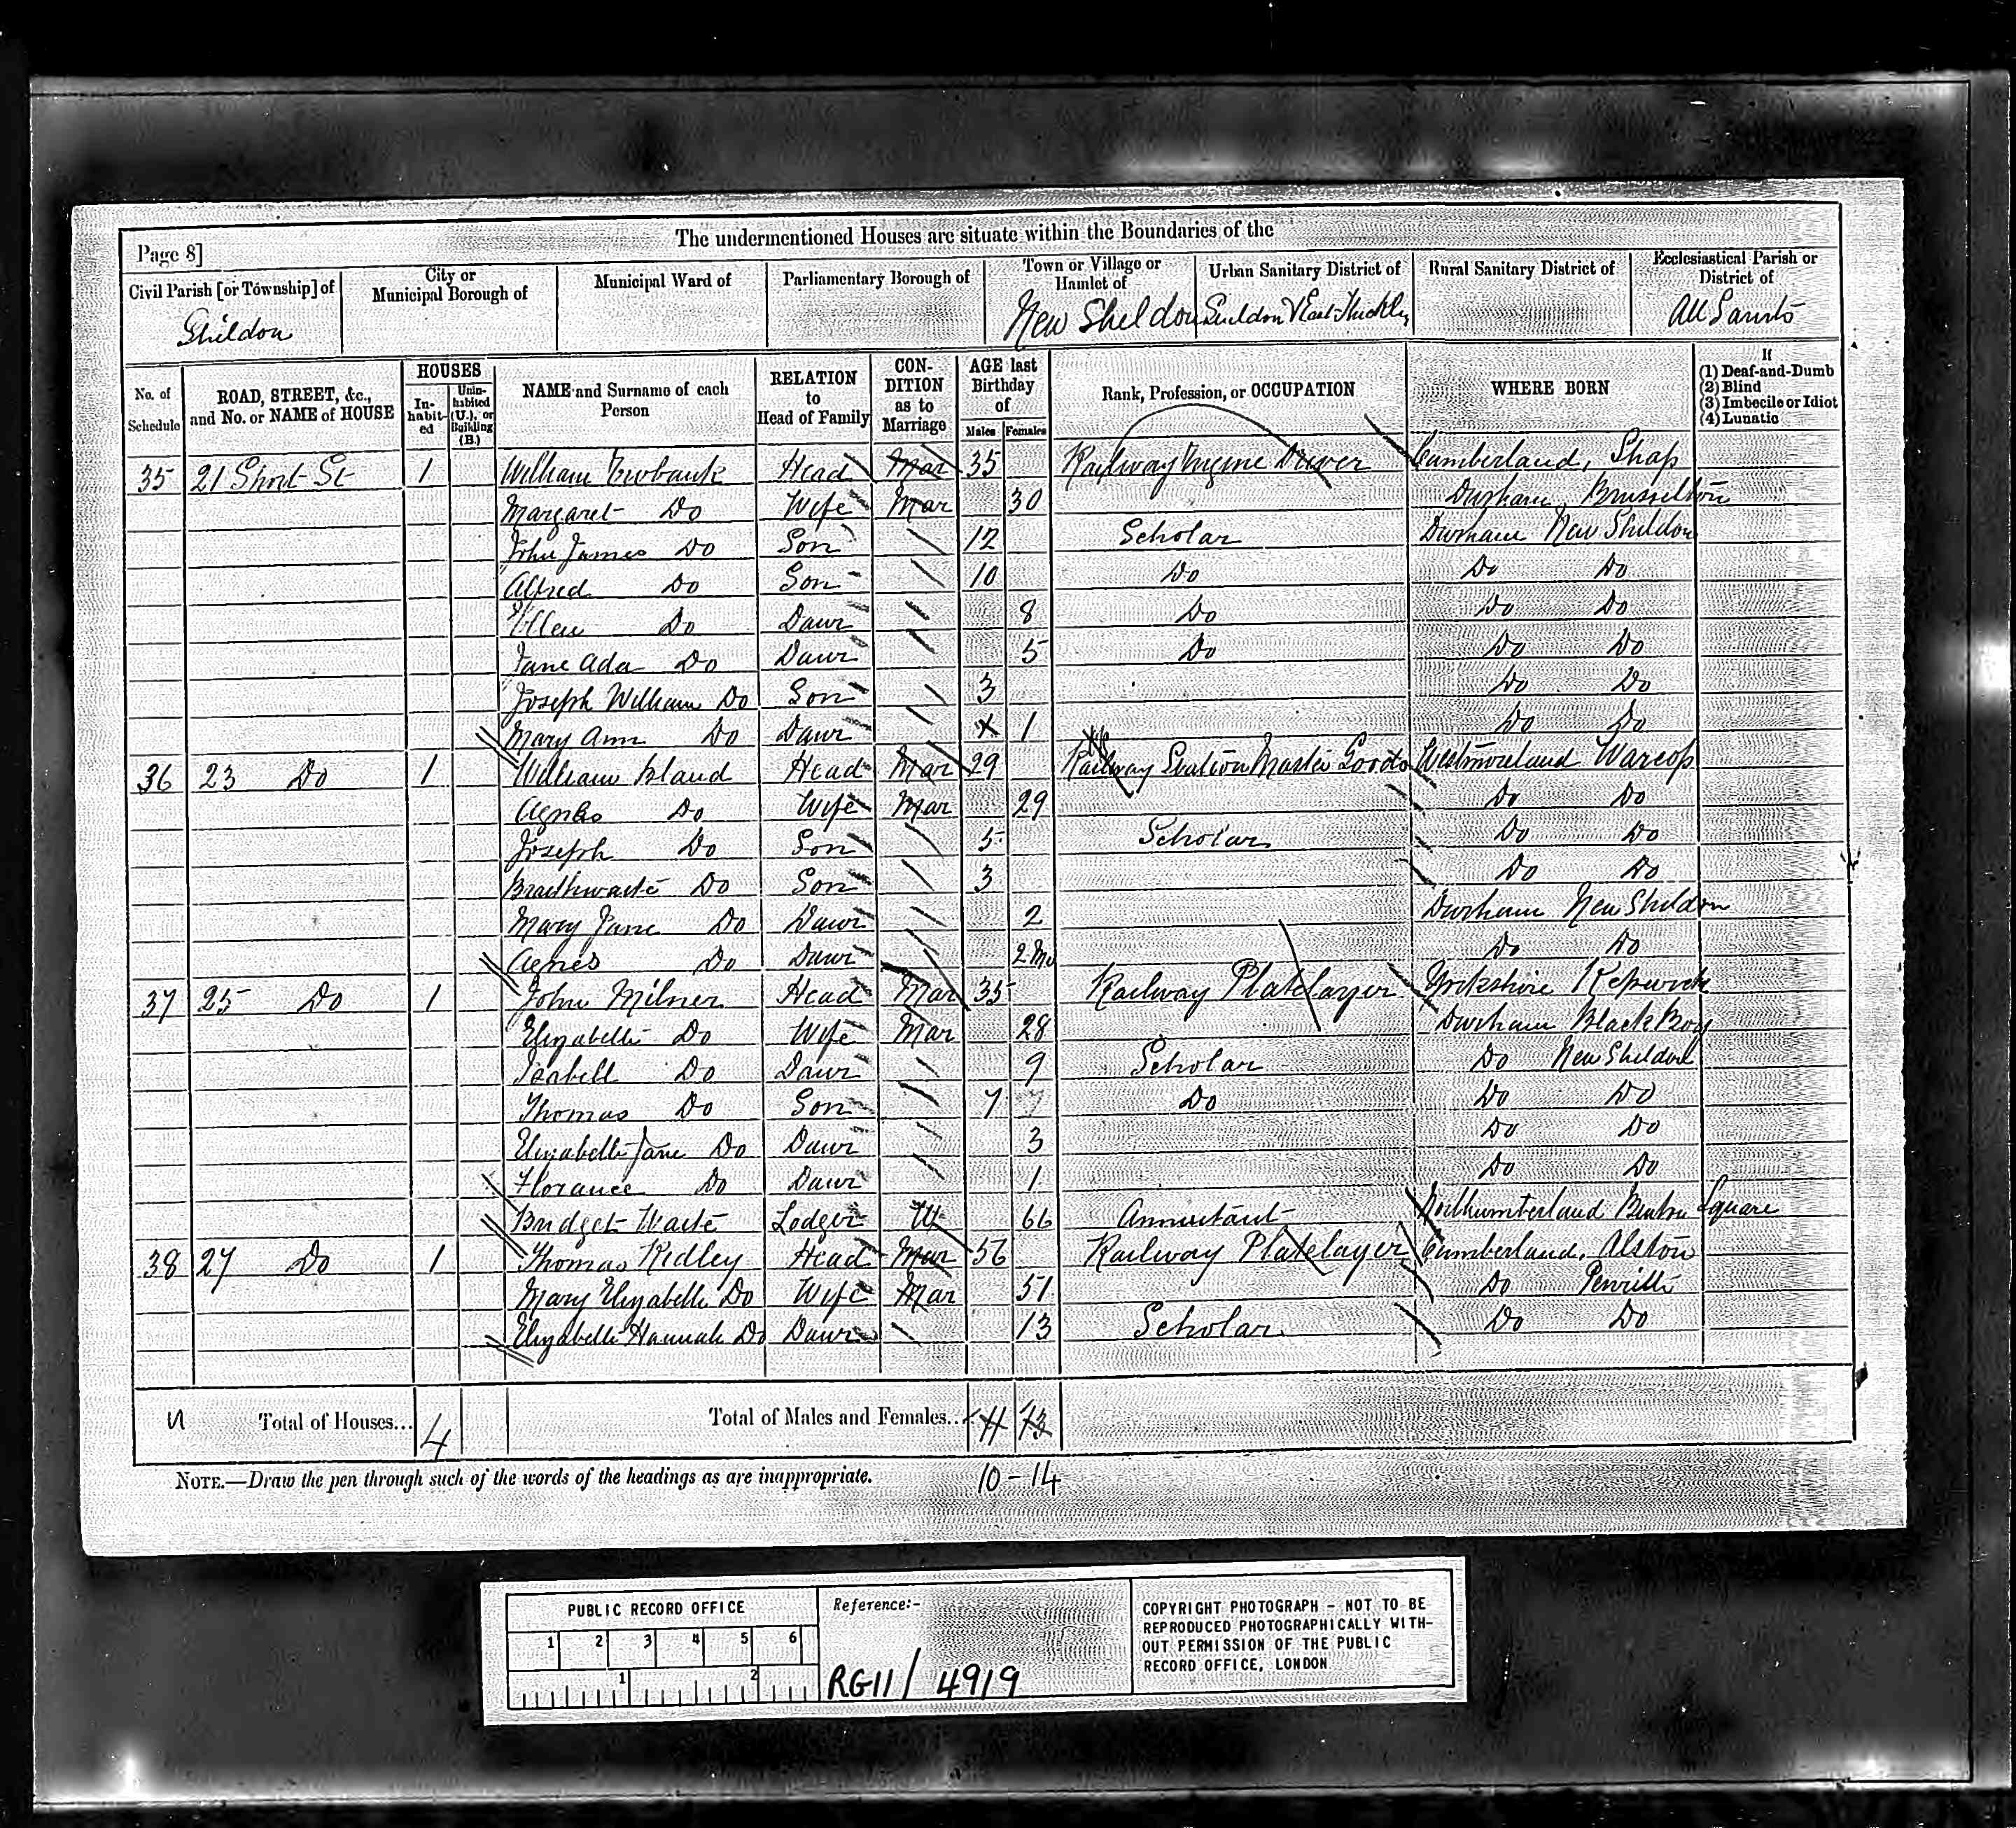 The undermentioned Houses are situate within the Boundaries of the
Page 8]
Civil Parish [or Township] of
City or Municipal Borough of
Municipal Ward of
Parliamentary Borough of
Town or Village or Hamlet of
Urban Sanitary District of
Rural Sanitary District of
Ecclesiastical Parish or District of
Shildon
New Sheldon
Shildon & East Thickley
All Saints
No. of Schedule
ROAD, STREET, &c., and No. or NAME of HOUSE
HOUSES
In-habit-ed
Unin-habited (U.), or Building (B.)
NAME and Surname of each Person
RELATION to Head of Family
CON-DITION as to Marriage
AGE last Birthday of
Males
Females
Rank, Profession, or OCCUPATION
WHERE BORN
If
(1) Deaf-and-Dumb
(2) Blind
(3) Imbecile or Idiot
(4) Lunatic
35 21 Short St 1 William Ewbank Head Mar 35 Railway Engine Driver Cumberland, Shap
Margaret Do Wife Mar 30 Durham Brusselton
John James Do Son 12 Scholar Durham New Shildon
Alfred Do Son 10 Do Do Do
Ellen Do Daur 8 Do Do Do
Jane Ada Do Daur 5 Do Do Do
Joseph William Do Son 3 Do Do
Mary Ann Do Daur 1 Do Do
36 23 Do 1 William Bland Head Mar 29 Railway Station Master Goods Westmoreland Warcop
Agnes Do Wife Mar 29 Do Do
Joseph Do Son 5 Scholar Do Do
Braithwaite Do Son 3 Do Do
Mary Jane Do Daur 2 Durham New Shildon
Agnes Do Daur 2 Mo Do Do
37 25 Do 1 John Milner Head Mar 35 Railway Platelayer Yorkshire Kepwick
Elizabeth Do Wife Mar 28 Durham Black Boy
Isabell Do Daur 9 Scholar Do New Sheldon
Thomas Do Son 7 Do Do Do
Elizabeth Jane Do Daur 3 Do Do
Florance Do Daur 1 Do Do
Bridget Waite Lodger W 66 Annuitant Northumberland Benton Square
38 27 Do 1 Thomas Ridley Head Mar 56 Railway Platelayer Cumberland, Alston
Mary Elizabeth Do Wife Mar 51 Do Penrith
Elizabeth Hannah Do Daur 13 Scholar Do Do
Total of Houses... 4 Total of Males and Females... 11 13
NOTE.—Draw the pen through such of the words of the headings as are inappropriate. 10-14
PUBLIC RECORD OFFICE
1 2 3 4 5 6
1 2
Reference:-
RG11/ 4919
COPYRIGHT PHOTOGRAPH - NOT TO BE
REPRODUCED PHOTOGRAPHICALLY WITH-
OUT PERMISSION OF THE PUBLIC
RECORD OFFICE, LONDON